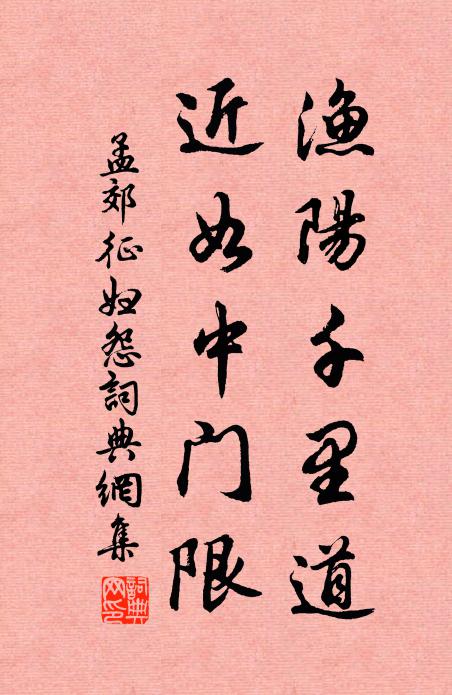 漁陽千里道
近如中门限
孟郊征婦怨詞典網集
詞典網印